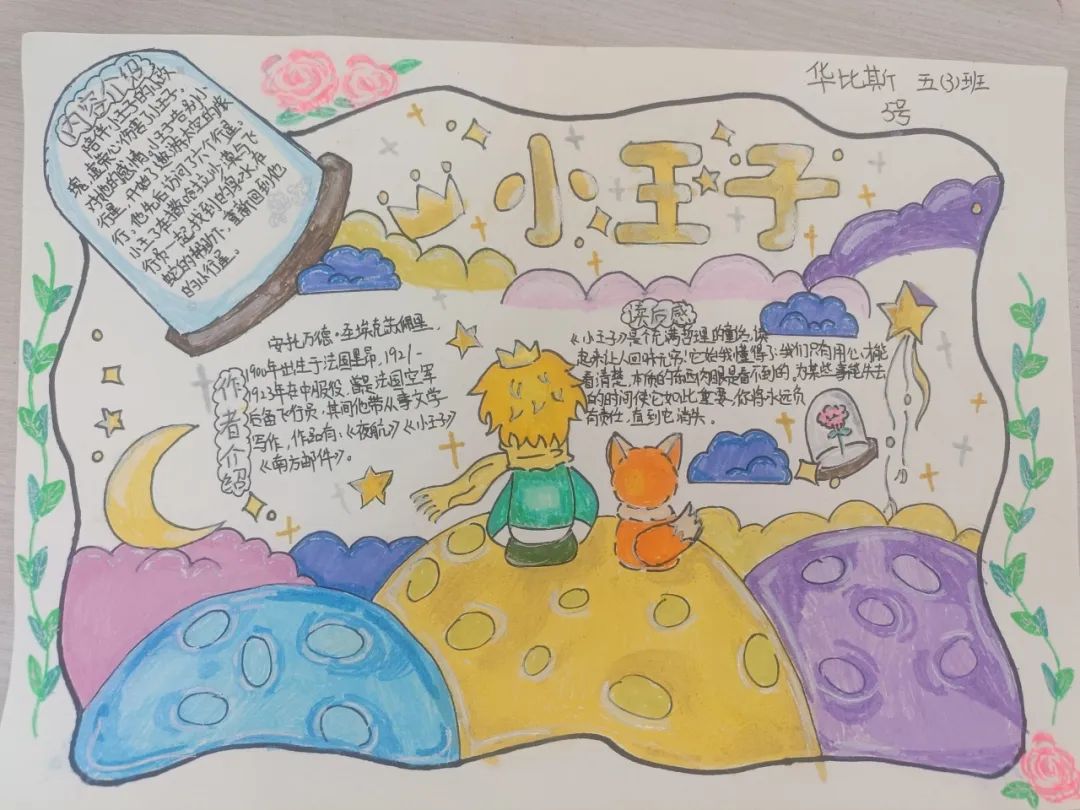 华比斯 五(3)班
5号
小王子
内容介绍
陪伴小王子的小玫
瑰虚荣心伤害了小王子,
对他的感情。小王子告别小
行星,开始了遨游太空的旅
行,他先后访问了六个行星。
小王子在撒哈拉沙漠与飞
行员一起找到的泉水在
蛇的帮助下,重新回到他
的小行星。
作者介绍
安托万德·圣埃克苏佩里,
1900年出生于法国里昂,1921-
1923年在中服役,曾是法国空军
后备飞行员,其间他带从事文学
写作,作品有:《夜航》《小王子》
《南方邮件》。
读后感
《小王子》是个充满哲理的童话,读
起来让人回味无穷!它始我懂得了:我们只有用心才能
看清楚,本质的东西肉眼是看不到的。为某些事能失去
的时间使它如此重要,你将永远负
有责任,直到它消失。